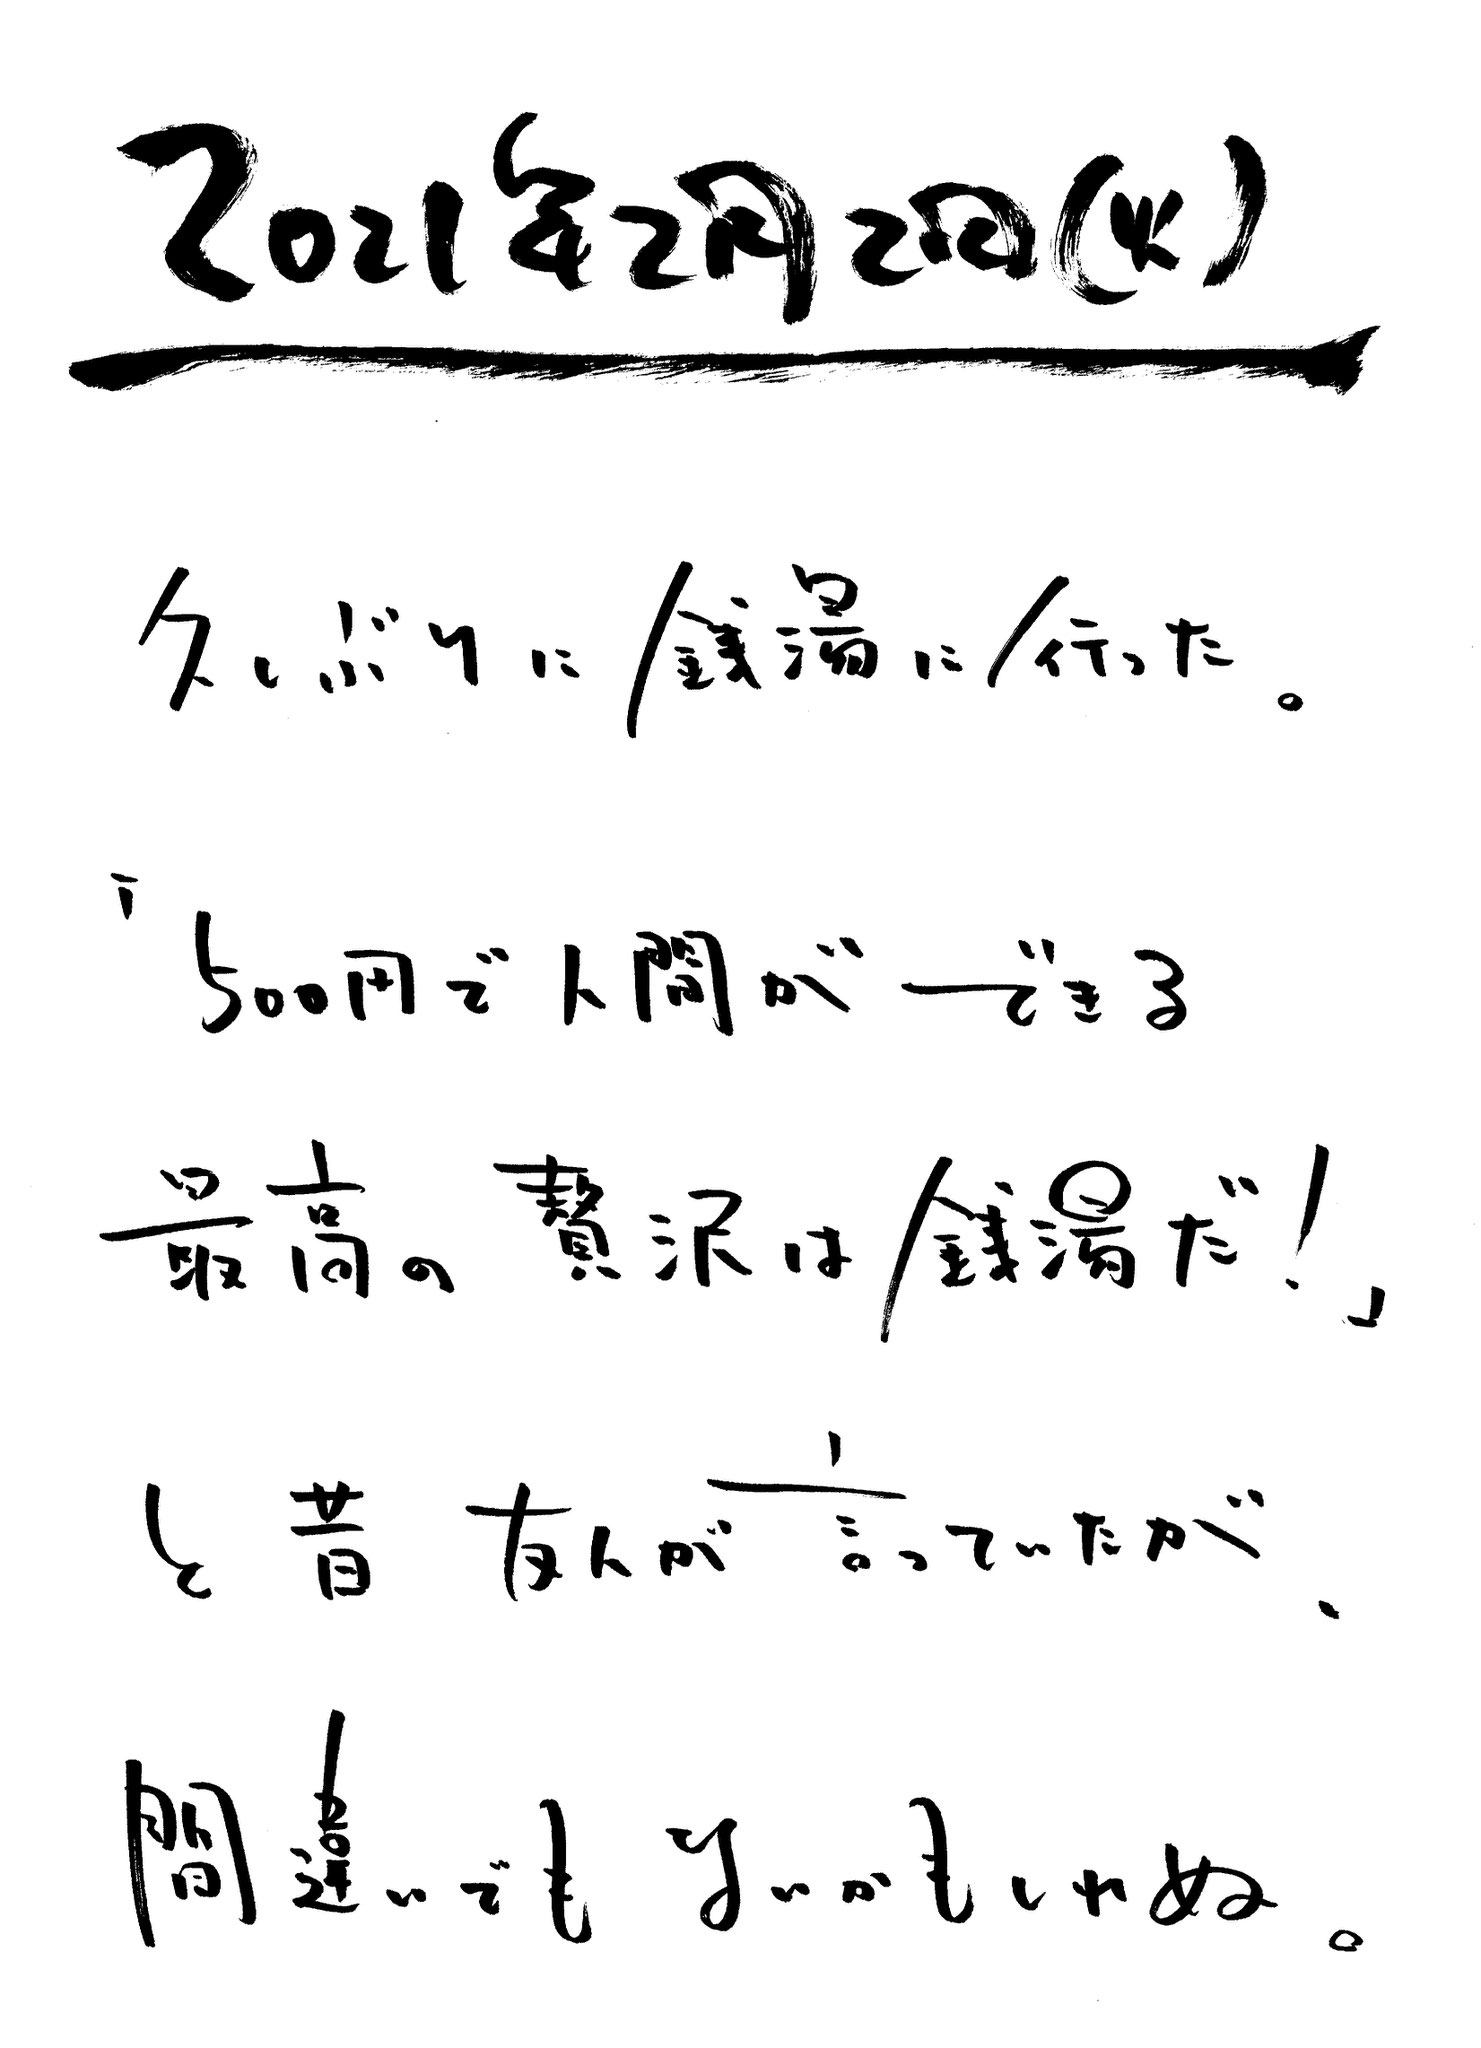 2021年2月2日(火)
久しぶりに銭湯に行った。
「500円で人間ができる
最高の贅沢は銭湯だ!」
と昔友人が言っていたが、
間違いでもないかもしれぬ。